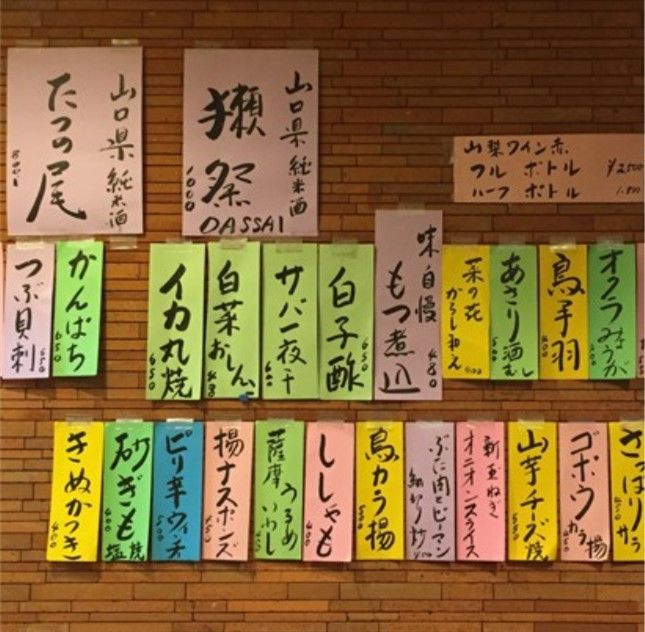 山口県 純米酒
たつの尾
800
山口県 純米酒
獺祭
1000
DASSAI
山梨ワイン赤
フル ボトル ¥2500
ハーフ ボトル 1.500
つぶ貝刺
650
かんぱち
650
イカ丸焼
650
白菜おしんこ
サバ一夜干
600
白子酢
650
味自慢
もつ煮込
480
菜の花
からし和え
400
あさり酒むし
500
鳥手羽
オクラみょうが
きぬかつぎ
400
砂ぎも塩焼
400
ピリ辛ウィンナー
揚ナスポンズ
450
薩摩
うるめいわし
ししゃも
400
鳥カラ揚
500
ぶた肉とピーマン
細切り炒
新玉ねぎ
オニオンスライス
山芋チーズ焼
550
ゴボウカラ揚
450
さっぱりサラ